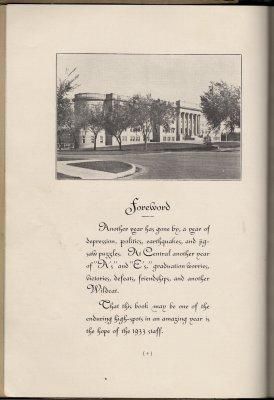 Foreword
Another year has gone by, a year of
depression, politics, earthquakes, and jig-
saw puzzles. At Central another year
of "A's," and "E's," graduation worries,
victories, defeats, friendships, and another
Wildcat.
That this book may be one of the
enduring high-spots in an amazing year is
the hope of the 1933 staff.
(4)